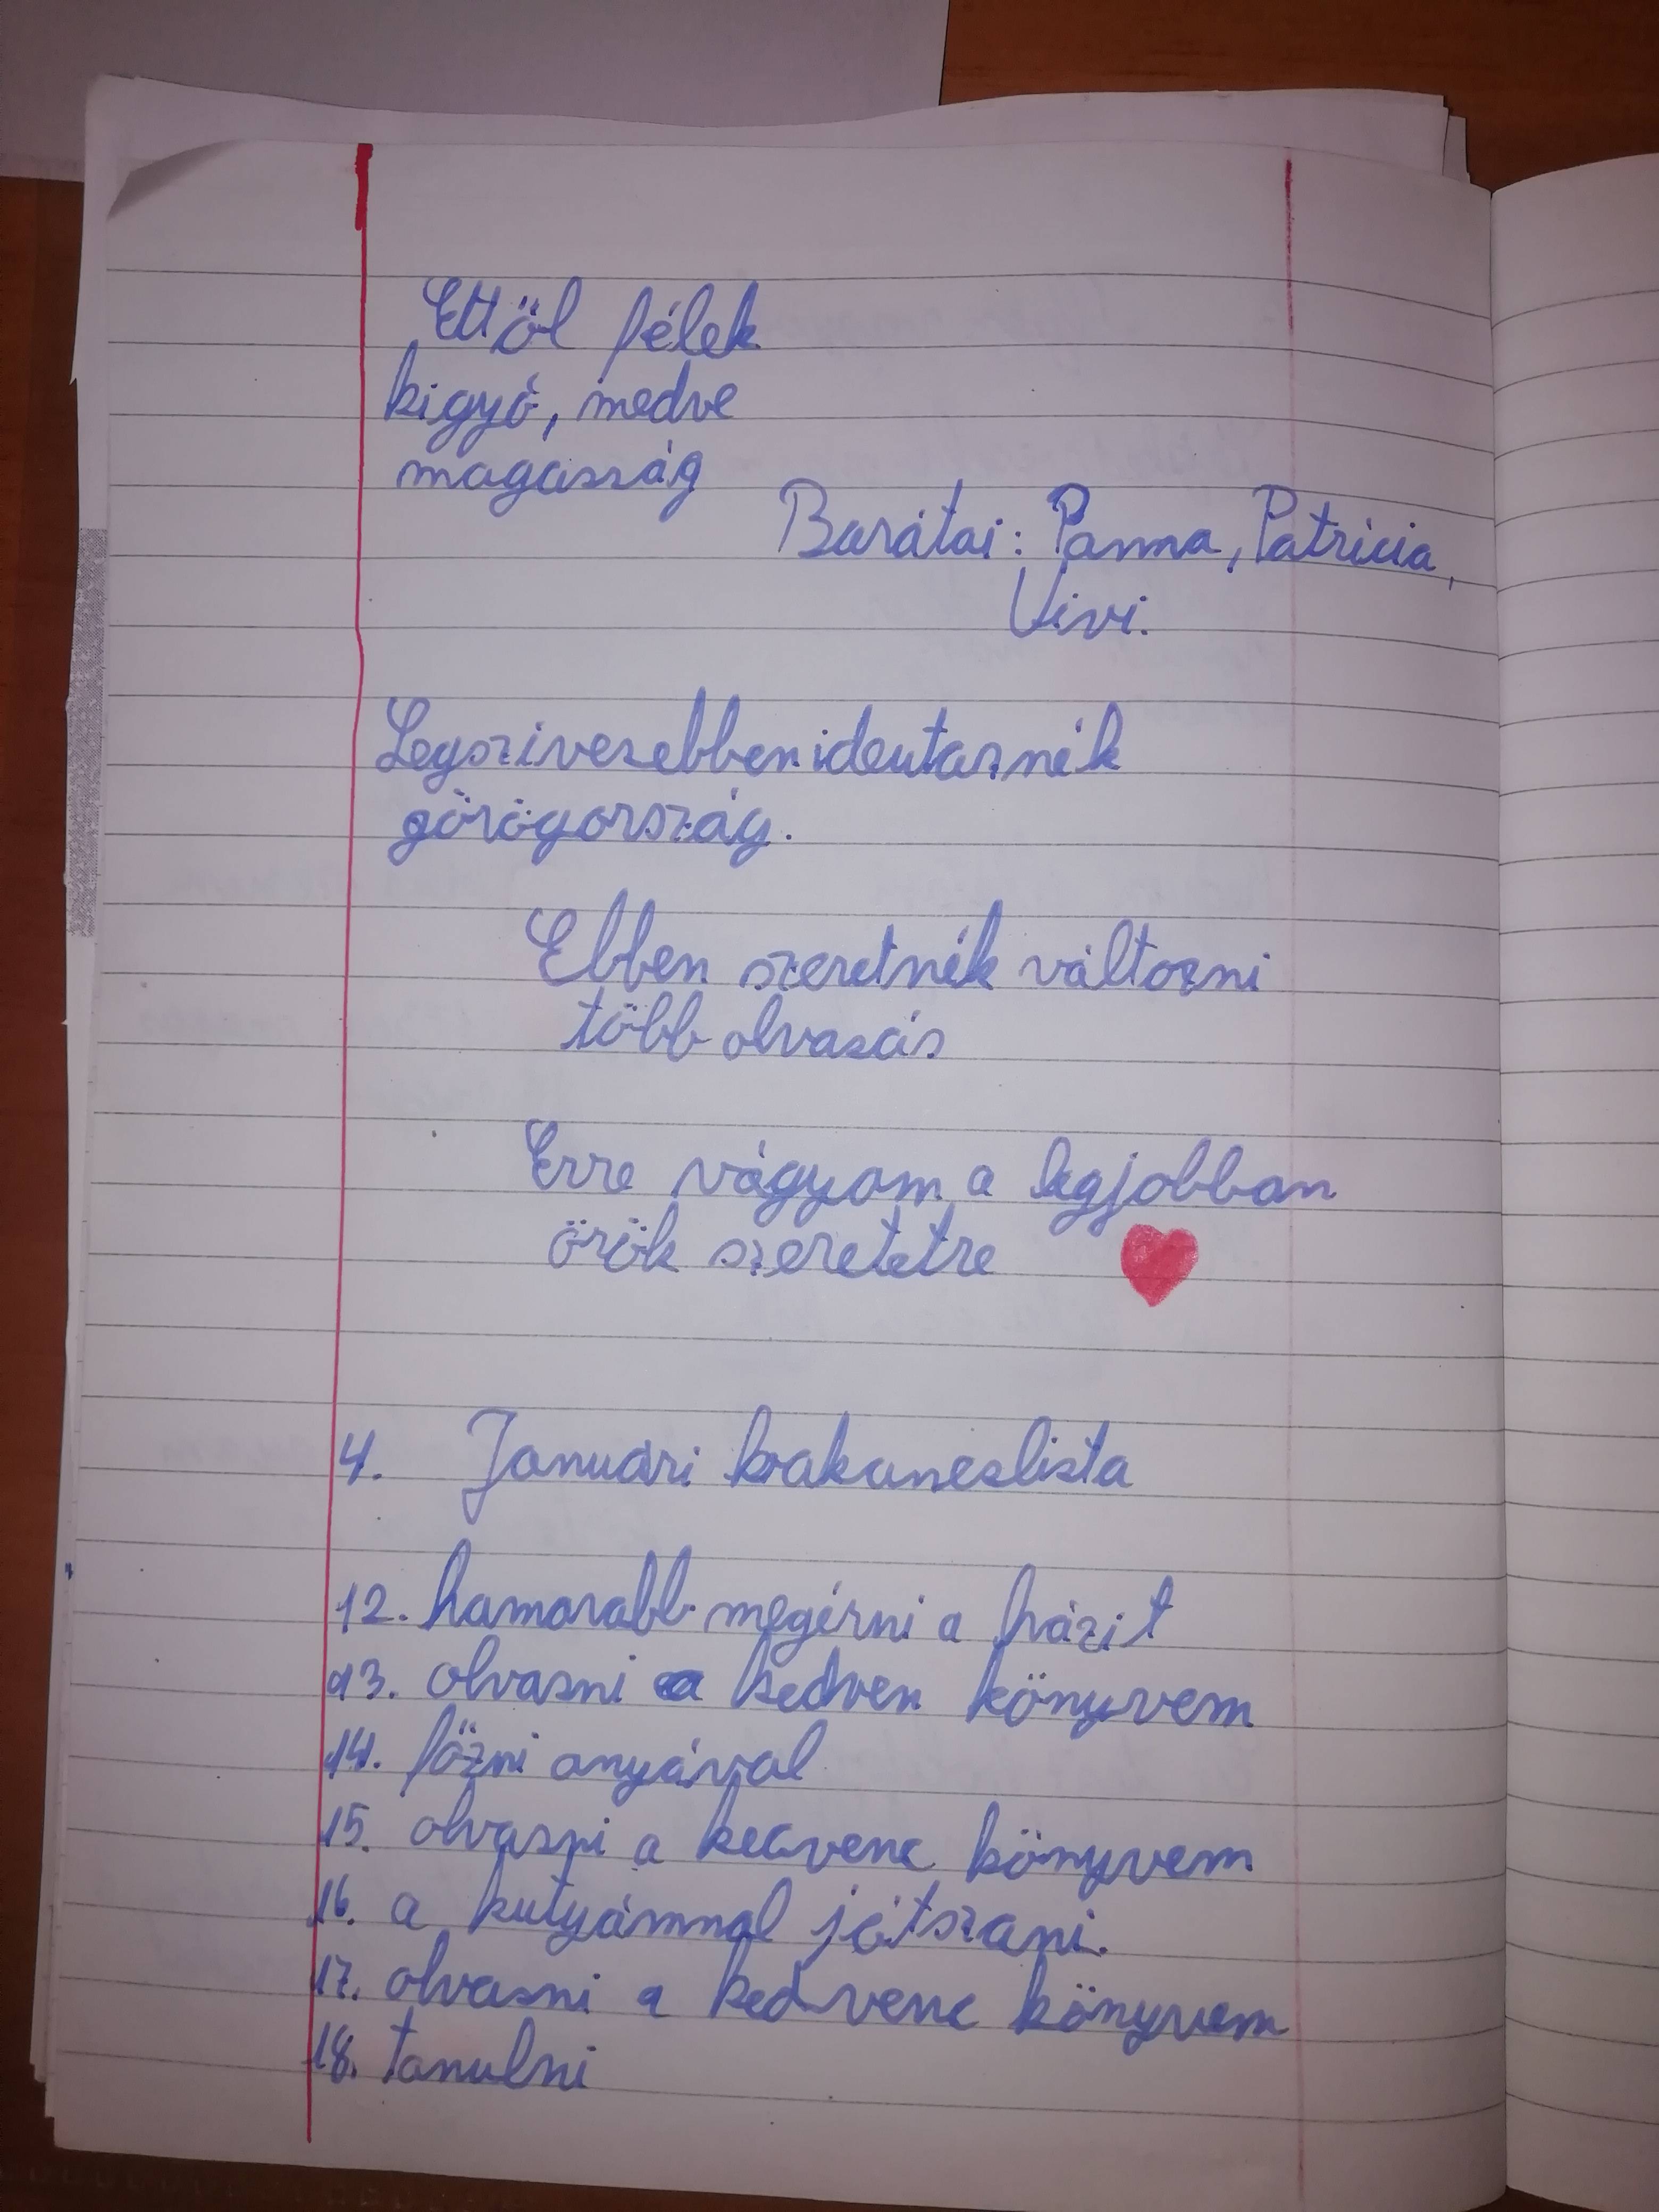 Ettöl félek
kigyó, medve
magasság
Barátai: Panna, Patricia,
Vivi.
Legszivesebben ideutaznék
görögország.
Ebben szeretnék változni
több olvasás
Erre vágyom a legjobban
örök szeretetre
4. Januári bakancslista
12. hamarabb megírni a házit
13. olvasni a kedven könyvem
14. főzni anyával
15. olvasni a kedvenc könyvem
16. a kutyámmal játszani.
17. olvasni a kedvenc könyvem
18. tanulni